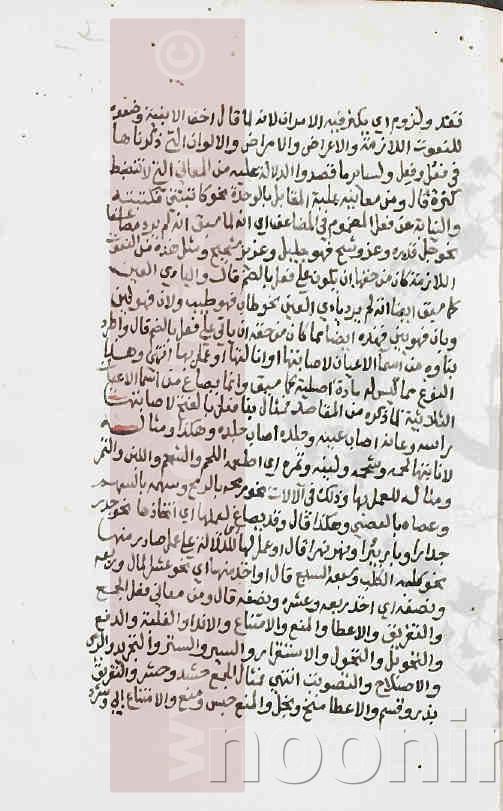 فقد ولزوم اي يكثر فيه الامران لانه لما قال اخف الابنية وضعوه
للنعوت اللازمة والاعراض والامراض والالوان التي ذكرناها
في فعُل وفعِل ولسائر ما قصدوا الدلالة عليه من المعاني التي لا تنضبط
كثرة قال ومن معانيه غلبة المقابل بالوحدة نحو كاتبتني فكتبته
والنيابة عن فعل المضموم في المضاعف اي انه لما سبق انه لم يرد مضاعفا
نحو جل قدره وعز وشح فهو جليل وعزيز وشحيح ومثل هذه من النعوت
اللازمة كان من حقها ان يكون على فعل بالضم قال واليائي العين
كما سبق ايضا انه لم يرد يائي العين نحو طاب فهو طيب ولان فهو لين
وبان فهو بين فهذه ايضا مما كان من حقه ان ياتي على فعل بالضم قال واطرد
بناوه من اسماء الاعيان لاصابتها او انالتها او عمل بها انتهى وهذا
النوع مما ليس له مادة اصلية كما سبق وانما يصاغ من اسماء الاعيان
الثلاثية لما ذكره من المقاصد فمثال بنا فعل بالفتح لاصابتها
راسه وعانه اصاب عينه وجلده اصاب جلده وهكذا ومثاله
لانالتها لحمه وشحمه ولبنه وتمره اي اطعمه اللحم والشحم واللبن والتمر
ومثاله للعمل بها وذلك في الالات نحو رمحه بالرمح وسهمه بالسهم
وعصاه بالعصى وهكذا قال وقد يصاغ لعملها اي اتخاذها نحو جدر
جدارا وبأر بئرا ونهر نهرا قال او عمل لها اي للدلالة على عمل صادر منها
نحو كلبه الكلب وسبعه السبع قال او اخذ منها اي نحو ثلث المال وربعه
ونصفه اي اخذ ربعه وعشره ونصفه قال ومن معاني فعل الجمع
والتفريق والاعطا والمنع والامتناع والايذا والغلبة والدفع
والتحويل والتحول والاستقرار والسير والستر والتجريد والرمي
والاصلاح والتصويت انتهى فمثال الجمع حشد وحشر والتفريق
بذر وقسم والاعطا منح ونحل والمنع حبس ومنع والامتناع ابى وشرد
noonin